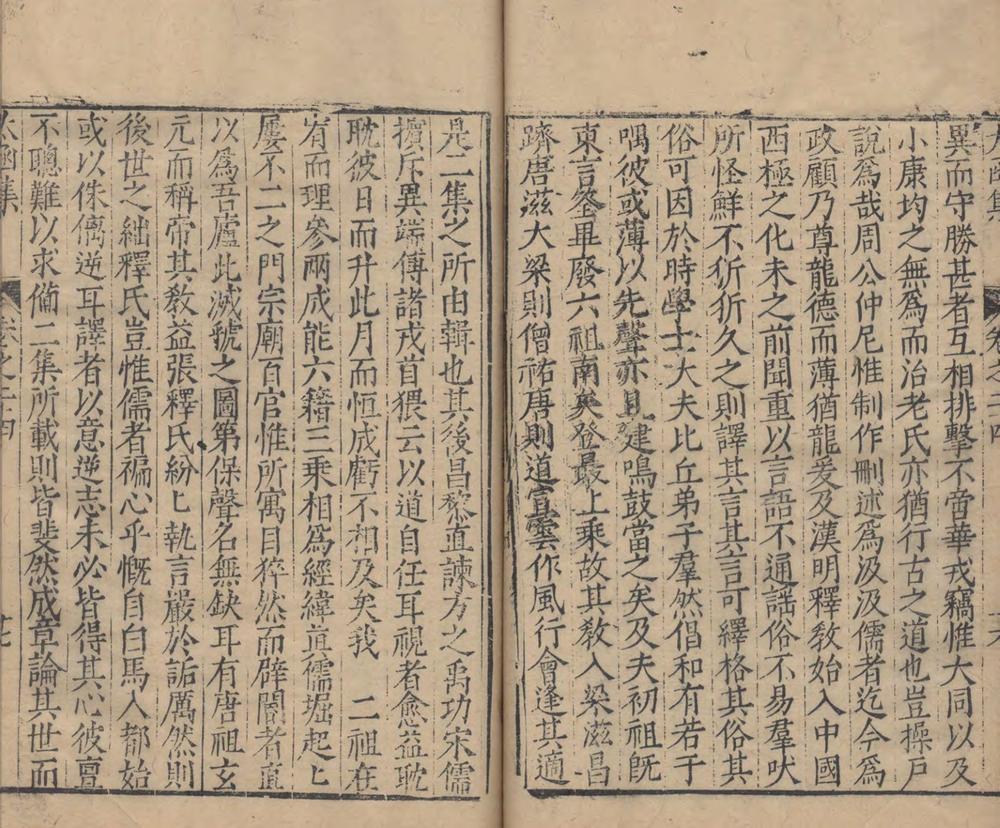 異而守勝甚者互相排擊不啻華戎竊惟大同以及
小康均之無爲而治老氏亦猶行古之道也豈操戶
說爲哉周公仲尼惟制作刪述爲汲汲儒者迄今爲
政顧乃尊龍德而薄猶龍爰及漢明釋教始入中國
西極之化未之前聞重以言語不通謡俗不易羣吠
所怪鮮不狺狺久之則譯其言其言可繹格其俗其
俗可因於時學士大夫比丘弟子羣然倡和有若于
喁彼或薄以先聲亦且建鳴鼓當之矣及夫初祖旣
東言筌畢廢六祖南矣登最上乘故其教入梁滋昌
躋唐滋大梁則僧祐唐則道宣雲作風行會逢其適
是二集之所由輯也其後昌黎直諫方之禹功宋儒
擯斥異端傅諸戎首猥云以道自任耳視者愈益耽
耽彼日而升此月而恒成虧不相及矣我 二祖在
宥而理參兩成能六籍三乘相爲經緯直儒堀起上
屡不二之門宗廟百官惟所寓目猝然而辟闇者直
以爲吾廬此滅虢之圖第保聲名無缺耳有唐祖玄
元而稱帝其教益張釋氏紛匕執言嚴於詬厲然則
後世之絀釋氏豈惟儒者褊心乎慨自白馬入都始
或以侏㒧逆耳譯者以意逆志未必皆得其心彼亶
不聰難以求備二集所載則皆斐然成章論其世而
太函集 卷之二十四 十七